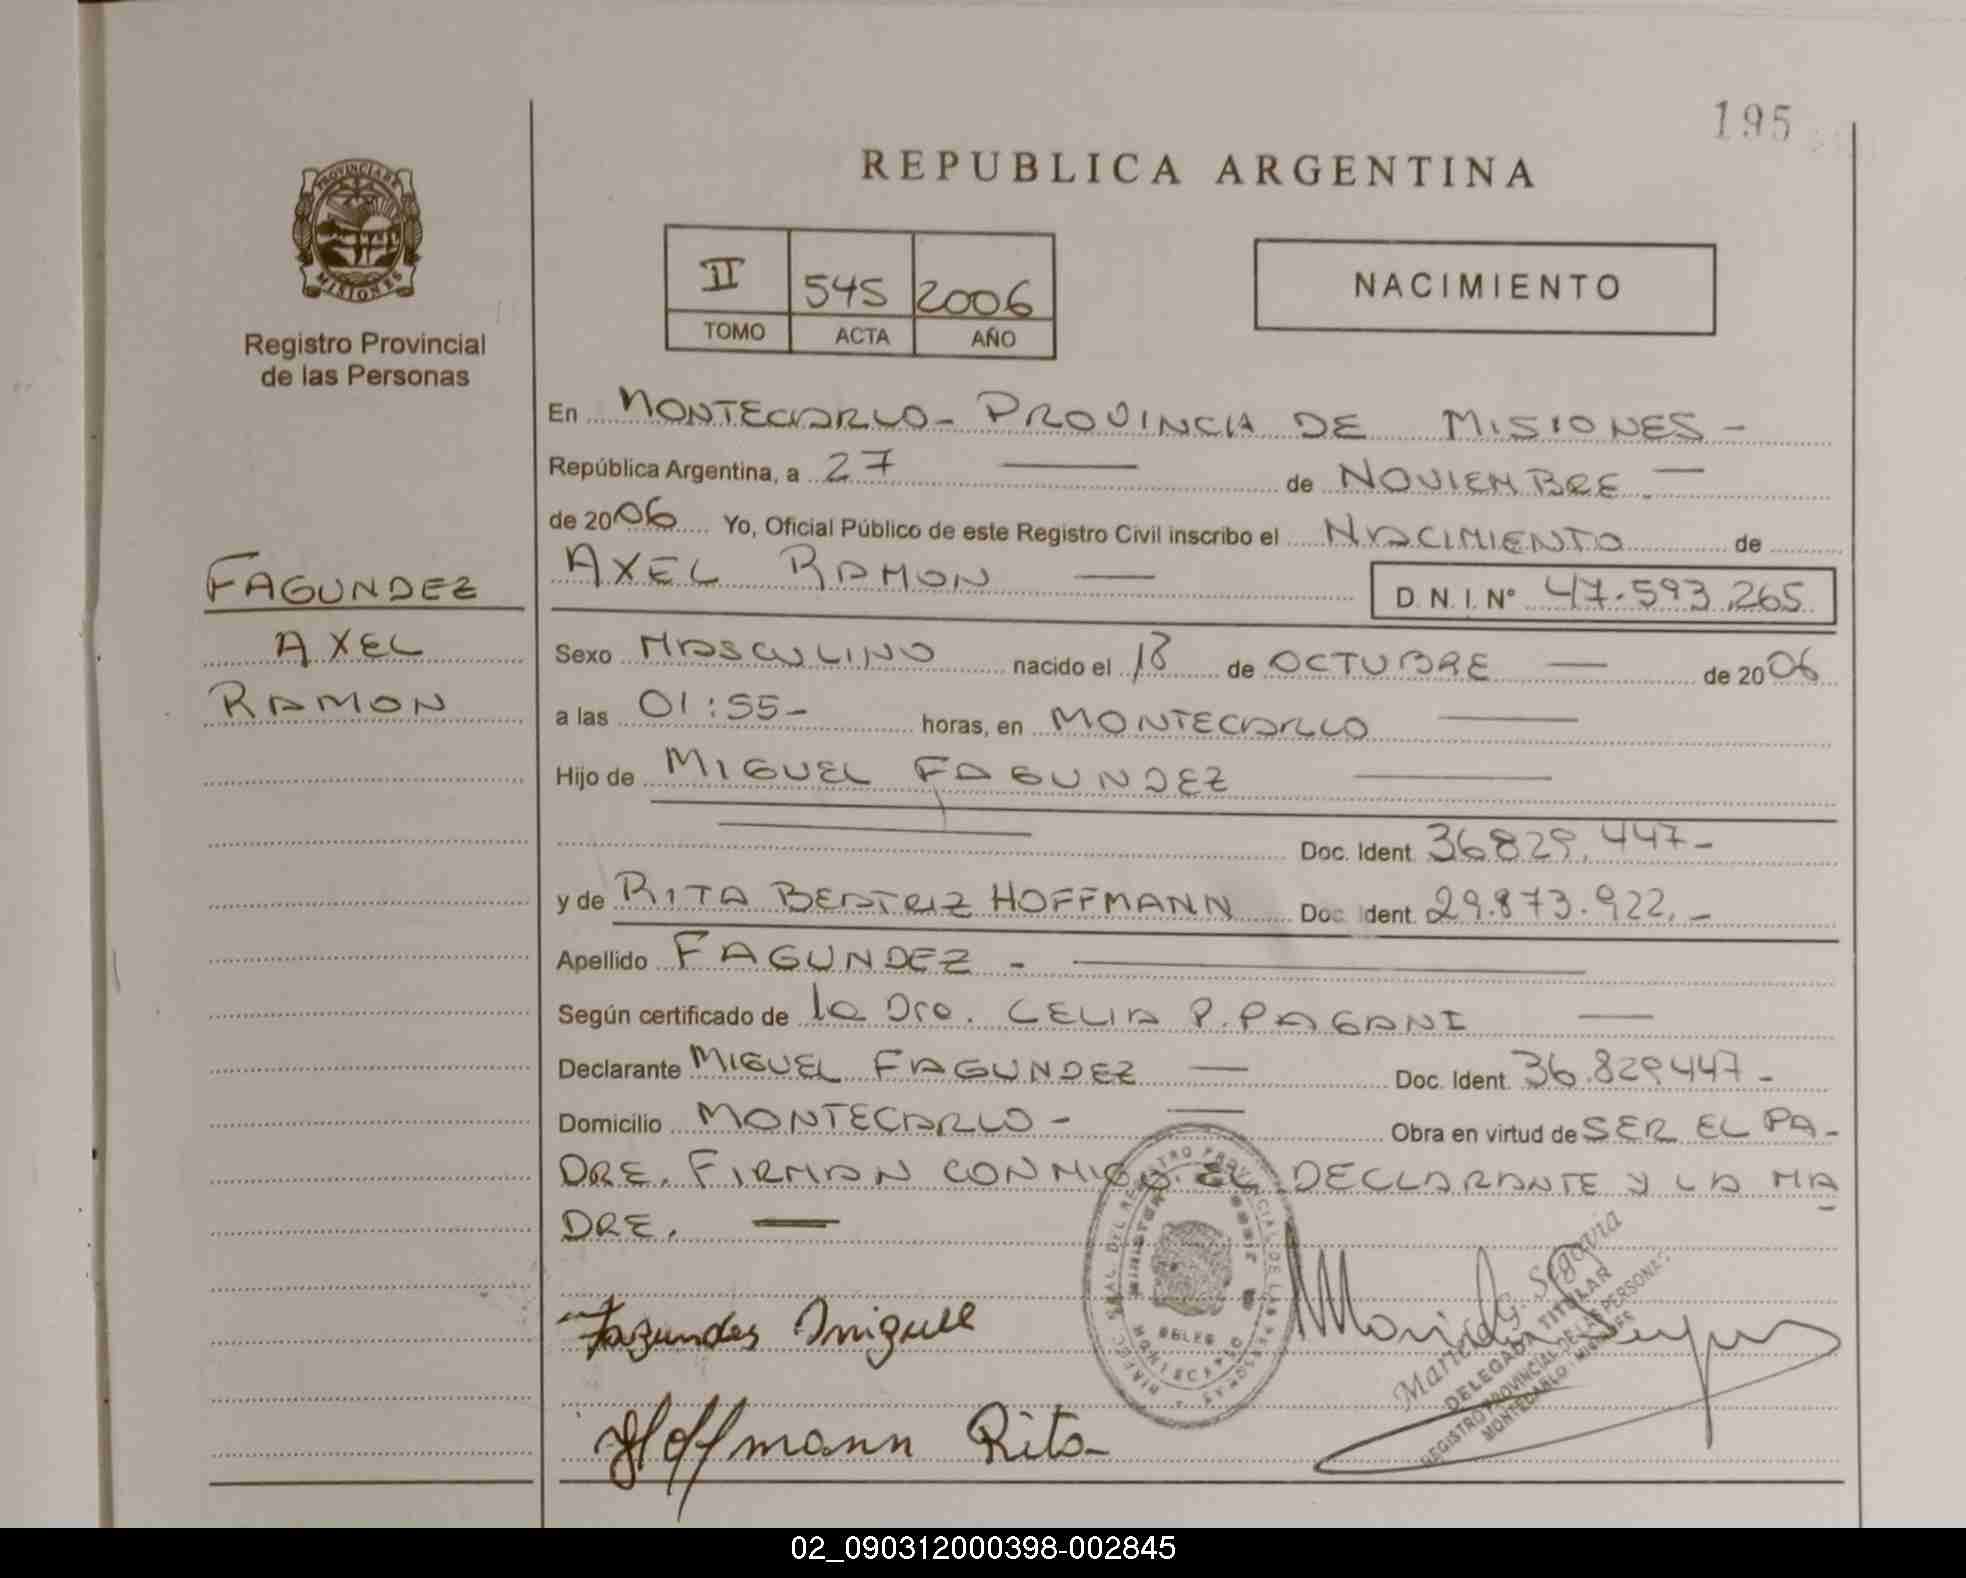 195
REPUBLICA ARGENTINA
PROVINCIA DE
MISIONES
Registro Provincial
de las Personas
II 545 2006
TOMO ACTA AÑO
NACIMIENTO
En MONTECARLO - PROVINCIA DE MISIONES -
República Argentina, a 27 — de NOVIEMBRE —
de 2006 Yo, Oficial Público de este Registro Civil inscribo el NACIMIENTO de
AXEL RAMON — D. N. I. N° 47.593.265
FAGUNDEZ
AXEL
RAMON
Sexo MASCULINO nacido el 18 de OCTUBRE — de 2006
a las 01:55- horas, en MONTECARLO —
Hijo de MIGUEL FAGUNDEZ —
— Doc. Ident. 36.829.447-
y de RITA BEATRIZ HOFFMANN Doc. Ident. 29.873.922.-
Apellido FAGUNDEZ - —
Según certificado de la Dra. CELIA P. PAGANI —
Declarante MIGUEL FAGUNDEZ — Doc. Ident. 36.829447-
Domicilio MONTECARLO - — Obra en virtud de SER EL PA-
DRE. FIRMAN CONMIGO EL DECLARANTE Y LA MA
DRE. —
Fagundes Miguel
Hoffmann Rita
DELEGADA TITULAR
REGISTRO PROVINCIAL DE LAS PERSONAS
MONTECARLO - MISIONES
02_090312000398-002845